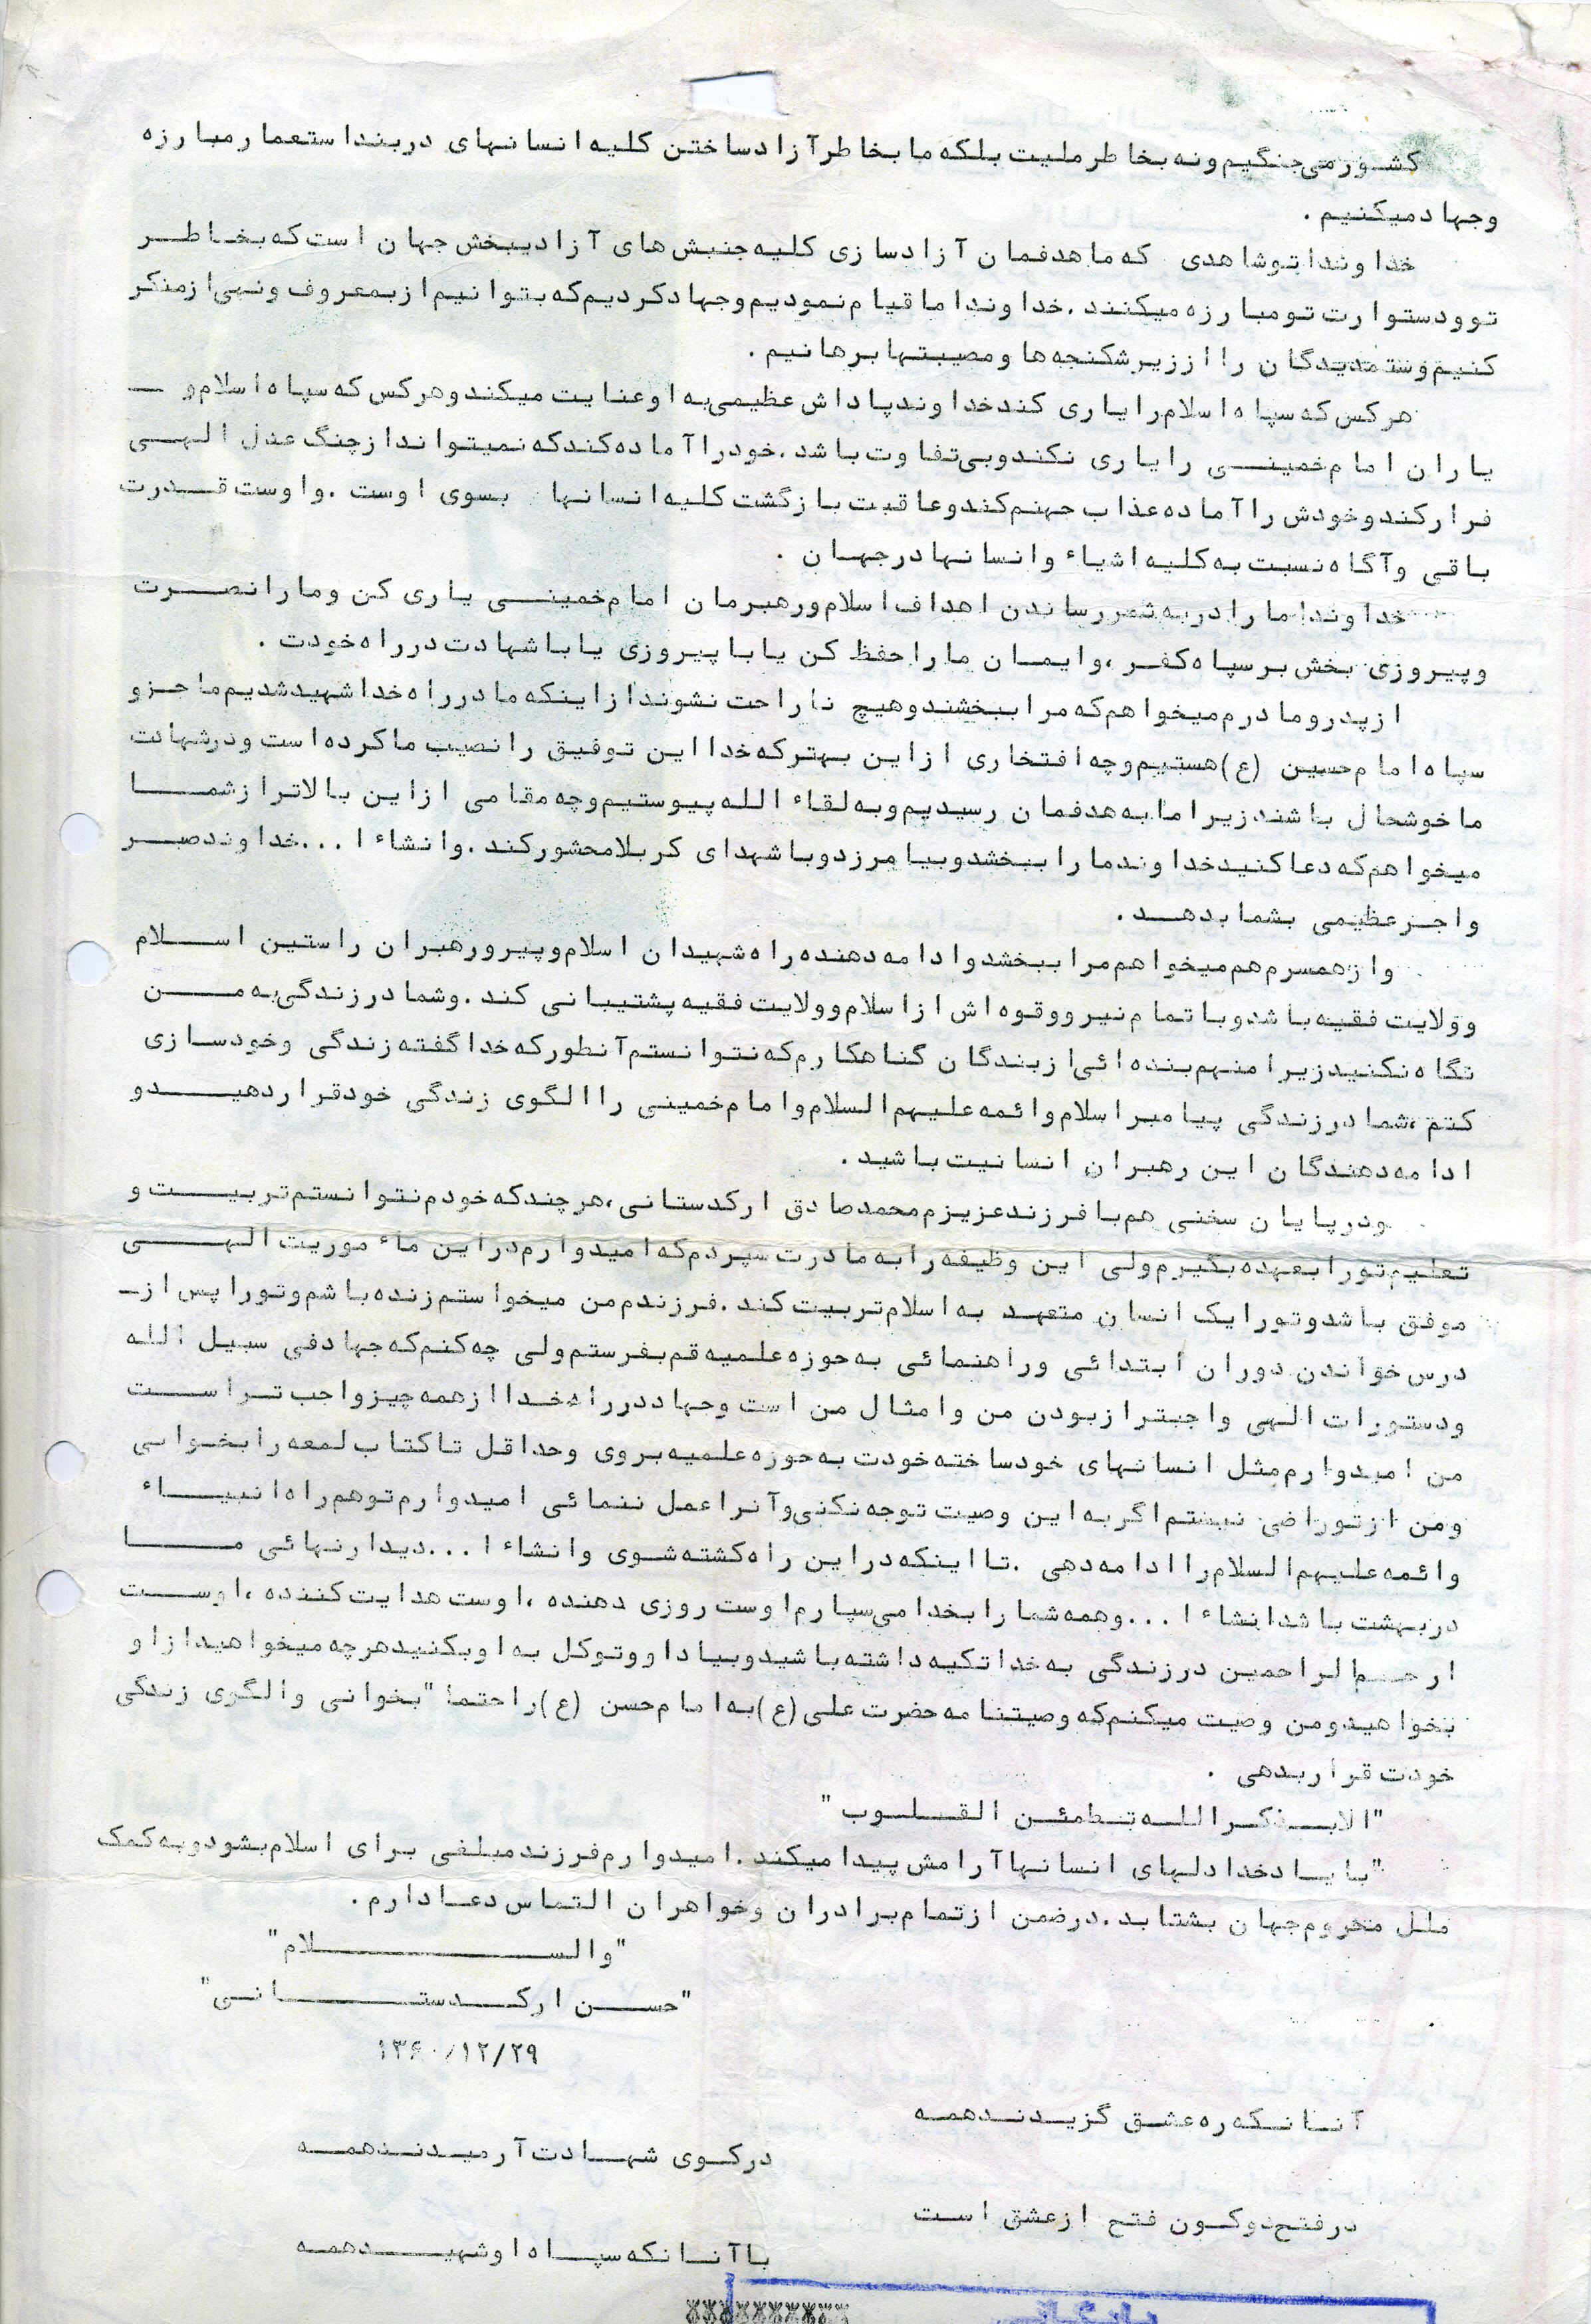 کشور می‌جنگیم و نه بخاطر ملیت بلکه ما بخاطر آزاد ساختن کلیه انسانهای دربند استعمار مبارزه
وجهاد میکنیم .
خداوندا تو شاهدی که ما هدفمان آزادسازی کلیه جنبش‌های آزادیبخش جهان است که بخاطر
تو ودستوارت تو مبارزه میکنند . خداوندا ما قیام نمودیم وجهاد کردیم که بتوانیم از بمعروف ونهی از منکر
کنیم وستمدیدگان را از زیر شکنجه‌ها ومصیبتها برهانیم .
هرکس که سپاه اسلام را یاری کند خداوند پاداش عظیمی به او عنایت میکند وهرکس که سپاه اسلام و
یاران امام خمینی را یاری نکند وبی‌تفاوت باشد . خود را آماده کند که نمیتواند از چنگ عدل الهی
فرار کند وخودش را آماده عذاب جهنم کند وعاقبت بازگشت کلیه انسانها بسوی اوست . واوست قدرت
باقی وآگاه نسبت به کلیه اشیاء وانسانها در جهان .
خداوندا ما را در به ثمر رساندن اهداف اسلام ورهبرمان امام خمینی یاری کن وما را نصرت
وپیروزی بخش بر سپاه کفر ، وایمان ما را حفظ کن یا با پیروزی یا با شهادت در راه خودت .
از پدر ومادرم میخواهم که مرا ببخشند وهیچ ناراحت نشوند از اینکه ما در راه خدا شهید شدیم ما جزو
سپاه امام حسین (ع) هستیم وچه افتخاری از این بهتر که خدا این توفیق را نصیب ما کرده است ودرشهادت
ما خوشحال باشند زیرا ما به هدفمان رسیدیم وبه لقاء الله پیوستیم وچه مقامی از این بالاتر از شما
میخواهم که دعا کنید خداوند ما را ببخشد وبیامرزد وبا شهدای کربلا محشور کند . وانشاء ا... خداوند صبر
واجر عظیمی بشما بدهد .
واز همسرم هم میخواهم مرا ببخشد وادامه دهنده راه شهیدان اسلام وپیرو رهبران راستین اسلام
وولایت فقیه باشد وبا تمام نیرو وقوه‌اش از اسلام وولایت فقیه پشتیبانی کند . وشما در زندگی به من
نگاه نکنید زیرا منهم بنده‌ائی از بندگان گناهکارم که نتوانستم آنطور که خدا گفته زندگی وخودسازی
کنم ، شما در زندگی پیامبر اسلام وائمه علیهم السلام وامام خمینی را الگوی زندگی خود قرار دهید و
ادامه دهندگان این رهبران انسانیت باشید .
ودر پایان سخنی هم با فرزند عزیزم محمد صادق ارکدستانی ، هر چند که خودم نتوانستم تربیت و
تعلیم تو را بعهده بگیرم ولی این وظیفه را به مادرت سپردم که امیدوارم در این ماءموریت الهی
موفق باشد وتو را یک انسان متعهد به اسلام تربیت کند . فرزندم من میخواستم زنده باشم وتو را پس از
درس خواندن دوران ابتدائی وراهنمائی به حوزه علمیه قم بفرستم ولی چه کنم که جهاد فی سبیل الله
ودستورات الهی واجبتر از بودن من وامثال من است وجهاد در راه خدا از همه چیز واجب تر است
من امیدوارم مثل انسانهای خودساخته خودت به حوزه علمیه بروی وحداقل تا کتاب لمعه را بخوانی
ومن از تو راضی نیستم اگر به این وصیت توجه نکنی وآنرا عمل ننمائی امیدوارم تو هم راه انبیاء
وائمه علیهم السلام را ادامه دهی . تا اینکه در این راه کشته شوی وانشاء ا... دیدار نهائی ما
در بهشت باشد انشاء ا... وهمه شما را بخدا می‌سپارم اوست روزی دهنده ، اوست هدایت کننده ، اوست
ارحم الراحمین در زندگی به خدا تکیه داشته باشید وبیاد او وتوکل به او بکنید هرچه میخواهید از او
بخواهید ومن وصیت میکنم که وصیتنامه حضرت علی (ع) به امام حسن (ع) را حتما" بخوانی والگوی زندگی
خودت قرار بدهی .
"الا بذکر الله تطمئن القلوب "
"با یاد خدا دلهای انسانها آرامش پیدا میکند . امیدوارم فرزند مبلغی برای اسلام بشود وبه کمک
ملل محروم جهان بشتابد . در ضمن از تمام برادران وخواهران التماس دعا دارم .
"والسلام"
"حسن ارکدستانی"
۱۳۶۰/۱۲/۲۹
آنانکه ره عشق گزیدند همه
در کوی شهادت آرمیدند همه
در فتح دو کون فتح از عشق است
با آنانکه سپاه او شهید همه
بایگانی